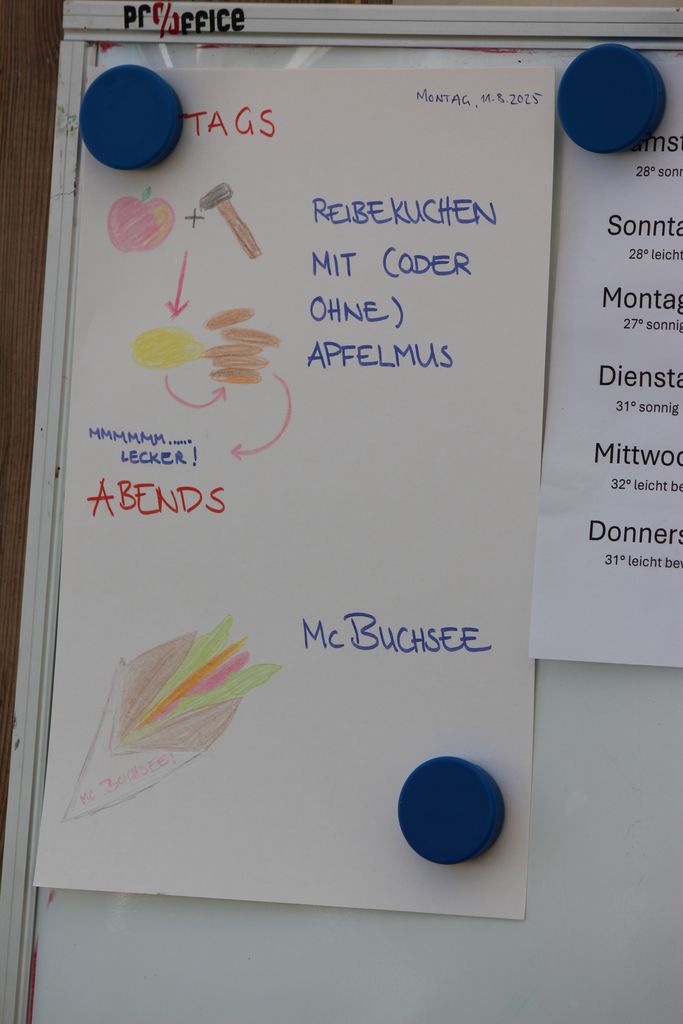 PRO/OFFICE
MONTAG, 11.8.2025
TAGS
+
REIBEKUCHEN
MIT (ODER
OHNE)
APFELMUS
MMMMMM......
LECKER!
ABENDS
MCBUCHSEE
MC BUCHSEE!
28° sonn
Sonnta
28° leicht
Montag
27° sonnig
Diensta
31° sonnig
Mittwoc
32° leicht be
Donners
31° leicht bew